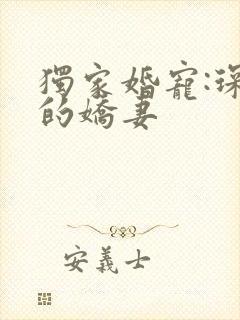 獨家婚寵:琛
的嬌妻
安義士